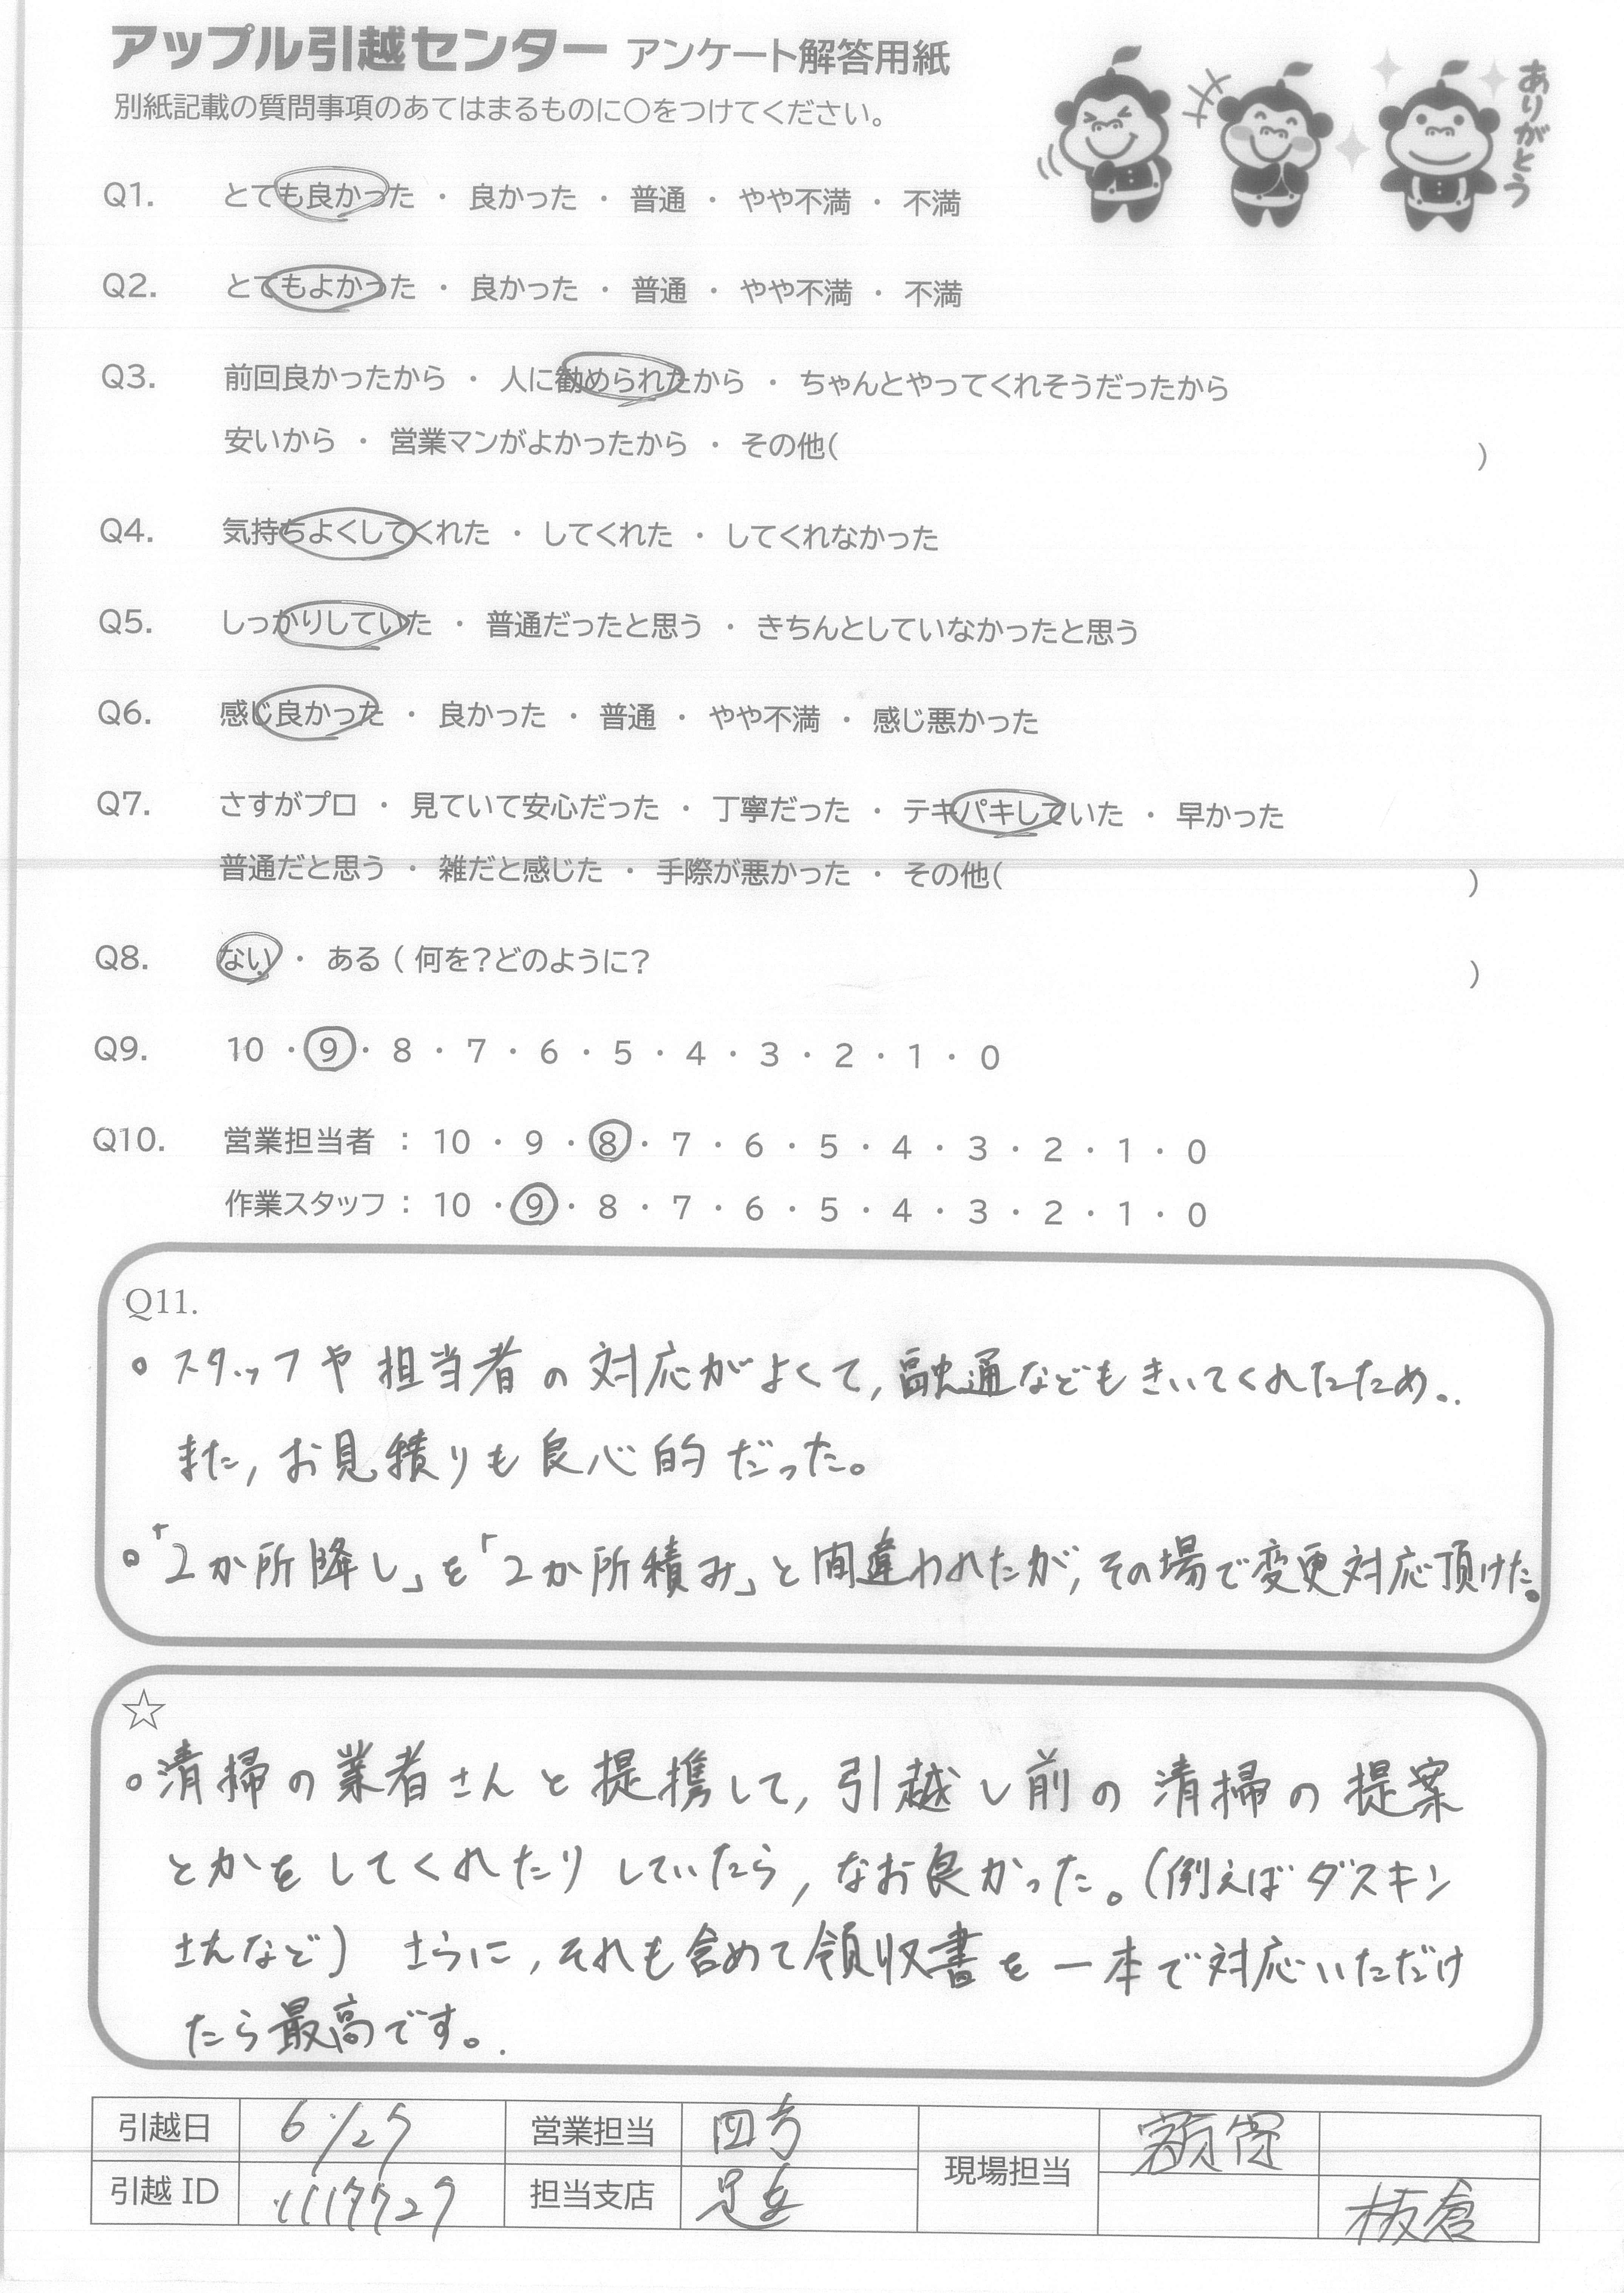 アップル引越センター アンケート解答用紙
別紙記載の質問事項のあてはまるものに〇をつけてください。
ありがとう
Q1. とても良かった ・ 良かった ・ 普通 ・ やや不満 ・ 不満
Q2. とてもよかった ・ 良かった ・ 普通 ・ やや不満 ・ 不満
Q3. 前回良かったから ・ 人に勧められたから ・ ちゃんとやってくれそうだったから
安いから ・ 営業マンがよかったから ・ その他( )
Q4. 気持ちよくしてくれた ・ してくれた ・ してくれなかった
Q5. しっかりしていた ・ 普通だったと思う ・ きちんとしていなかったと思う
Q6. 感じ良かった ・ 良かった ・ 普通 ・ やや不満 ・ 感じ悪かった
Q7. さすがプロ ・ 見ていて安心だった ・ 丁寧だった ・ テキパキしていた ・ 早かった
普通だと思う ・ 雑だと感じた ・ 手際が悪かった ・ その他( )
Q8. ない ・ ある ( 何を?どのように? )
Q9. 10 ・ 9 ・ 8 ・ 7 ・ 6 ・ 5 ・ 4 ・ 3 ・ 2 ・ 1 ・ 0
Q10. 営業担当者 : 10 ・ 9 ・ 8 ・ 7 ・ 6 ・ 5 ・ 4 ・ 3 ・ 2 ・ 1 ・ 0
作業スタッフ : 10 ・ 9 ・ 8 ・ 7 ・ 6 ・ 5 ・ 4 ・ 3 ・ 2 ・ 1 ・ 0
Q11.
○ スタッフや担当者の対応がよくて,融通などもきいてくれたため..
また,お見積りも良心的だった。
○「2か所降し」を「2か所積み」と間違われたが,その場で変更対応頂けた。
☆
○清掃の業者さんと提携して,引越し前の清掃の提案
とかをしてくれたりしていたら,なお良かった。(例えばダスキン
さんなど) さらに,それも含めて領収書を一本で対応いただけ
たら最高です。.
引越日 6/27 営業担当 現場担当
引越ID 担当支店 足立 板倉